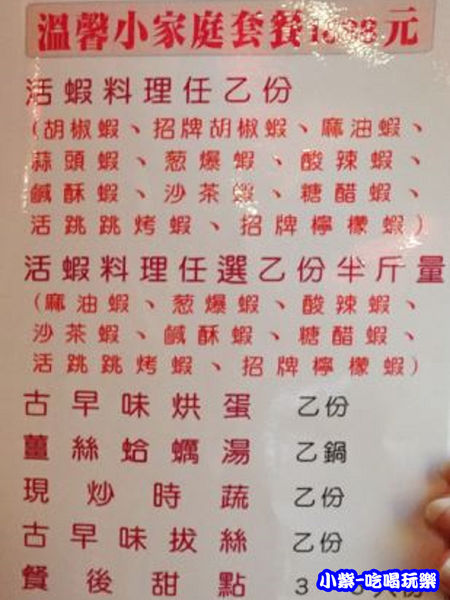 溫馨小家庭套餐1688元
活蝦料理任乙份
(胡椒蝦、招牌胡椒蝦、麻油蝦、
蒜頭蝦、葱爆蝦、酸辣蝦、
鹹酥蝦、沙茶蝦、糖醋蝦、
活跳跳烤蝦、招牌檸檬蝦)
活蝦料理任選乙份半斤量
(麻油蝦、葱爆蝦、酸辣蝦、
沙茶蝦、鹹酥蝦、糖醋蝦、
活跳跳烤蝦、招牌檸檬蝦)
古早味烘蛋 乙份
薑絲蛤蠣湯 乙鍋
現炒時蔬 乙份
古早味拔絲 乙份
餐後甜點 3
小紫-吃喝玩樂